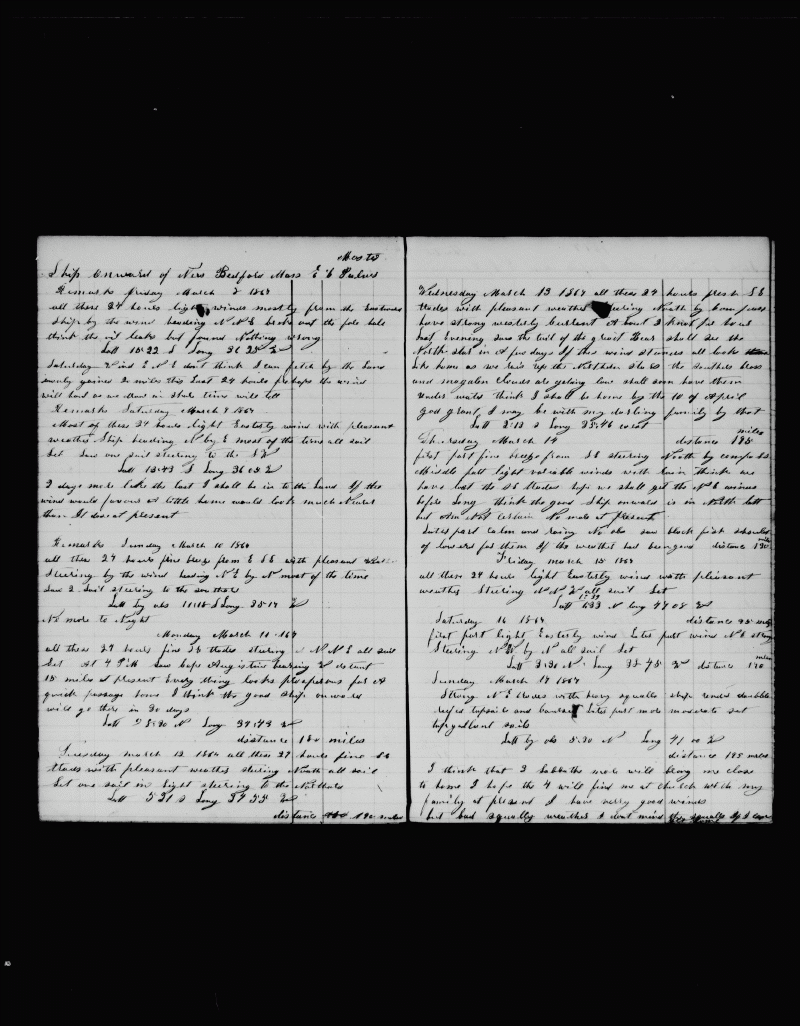 Master
Ship Onward of New Bedford Mass E C Pulver
Remarks Friday March 8 1867
all these 24 hours light winds mostly from the Eastward
Ship by the wind heading N N E broke out the fore hole
think the oil leaks but found Nothing wrong
Latt 15·22 S Long 36 28 W
Saturday Wind E N E dont think I can fetch by the Land
only gained 2 miles this Last 24 hours perhaps the wind
will haul as we draw in shore time will tell
Remarks Saturday March 9 1867
Most of these 24 hours light Easterly winds with pleasant
weather Ship heading N by E most of the time all sail
Set Saw one sail steering to the SW
Latt 13·43 S Long 36 05 W
2 days more like the last I shall be in to the Land If the
wind would favour a little home would look much Nearer
than It does at present
Remarks Sunday March 10 1867
all these 24 hours fine breeze from E S E with pleasant weather
Steering by the wind heading N E by N most of the time
Saw 2 Sail steering to the southard
Latt by obs 11·16 S Long 35·17 W
No more to Night
Monday March 11·167
all these 24 hours fine SE trades steering N N E all sail
Set At 4 PM saw Cape Augustine bearing W distant
15 miles at present Every thing looks prosperous for A
quick passage home I think the good Ship onward
will go there in 30 days
Latt 8·20 S Long 34·43 W
distance 180 miles
Tuesday march 12 1867 all these 24 hours fine SE
trades with pleasant weather steering North all sail
Set one sail in sight steering to the Northard
Latt 5 31 S Long 34 52 W
distance 190 miles
Wednesday March 13 1867 all these 24 hours fresh S E
trades with pleasant weather steering North by compass
have strong westerly current About 2 knot per hour
Last Evening saw the tail of the great Bear shall see the
North Star in A few days If this wind stands all looks
like home as we rais up the Northern stars the southern cross
and magalon Clouds are getting low shall soon have them
under water think I shall be home by the 10 of April
God grant I may be with my darling family by that
Latt 2·13 S Long 35·46 west
miles
Thursday March 14 distance 195
first part fine breeze from SE steering North by compass
Middle part light vareable winds with rain think are
have lost the SE trades hope we shall get the N E winds
before Long think the good Ship onward is in North latt
but Am Not certain No meals at present
Later part Calm and rainy No obs saw black fish should
of lowered for them If the weather had been good distance 120 miles
Friday march 15 1867
all these 24 hours light Easterly winds with pleasant
weather steering N N W all sail Set
Latt 1·33 N long 37 08 W
Saturday 16 1867 distance 95 miles
first part light Easterly wind Later part wind N E strong
steering N W by N all sail Set
Latt 3·31 N Long 38·45 W distance 170 miles
Sunday March 17 1867
Strong N E trades with heavy squalls ship under double
reefed topsails and courses Later part more moderate set
topgallant sails
Latt by obs 5·30 N Long 41 00 W
distance 195 miles
I think that 3 Sabbaths more will bring me close
to home I hope the 4 will find me at Church with my
family at present I have very good winds
but bad squally weather I dont mind the squalls If I can